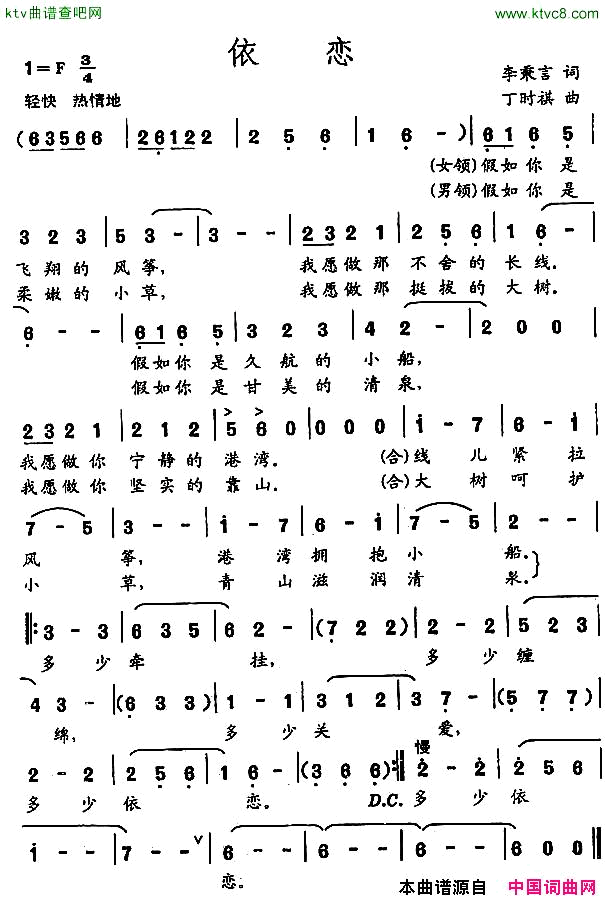 ktv曲谱查吧网
http://www.ktvc8.com
依 恋
1=F 3/4
李乘言 词
轻快 热情地
丁时祺 曲
(63566 | 26122 | 2 5 6 | 1 6 - ) | 61 6 5 |
(女领)假如你 是
(男领)假如你 是
3 2 3 | 5 3 - | 3 - - | 23 2 1 | 2 5 6 | 1 6 - |
飞翔的 风筝, 我愿做那 不舍的 长线.
柔嫩的 小草, 我愿做那 挺拔的 大树.
6 - - | 61 6 5 | 3 2 3 | 4 2 - | 2 0 0 |
假如你 是久航的 小船,
假如你 是甘美的 清泉,
23 2 1 | 2 1 2 | 5 6 0 | 0 0 0 | 1 - 7 | 6 1 2 |
我愿做你 宁静的 港湾. (合)线 儿紧拉
我愿做你 坚实的 靠山. (合)大 树呵护
7 - 5 | 3 - - | 1 - 7 | 6 - 1 | 2 7 5 | 2 - - |
风 筝, 港 湾拥 抱小 船.
小 草, 青 山滋 润清 泉.
3 - 3 | 6 3 5 | 6 2 - | (7 2 2) | 2 - 2 | 5 2 3 |
多 少牵 挂, 多 少缠
4 3 - | (6 3 3) | 1 - 1 | 3 1 2 | 3 7 - | (5 7 7) |
绵, 多 少关 爱,
慢
2 - 2 | 2 5 6 | 1 6 - | (3 6 6) 2 - 2 | 2 5 6 |
多 少依 恋. D.C. 多 少依
1 - - | 7 - - | 6 - - | 6 - - | 6 - - | 6 0 0
恋.
本曲谱源自 中国词曲网